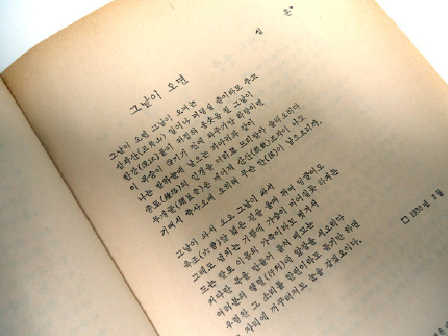 심 훈
그날이 오면
그날이 오면 그날이 오며는
삼각산(三角山)이 일어나 더덩실 춤이라도 추고
한강(漢江)물이 뒤집혀 용솟음 칠 그날이
이 목숨이 끊기기 전에 와주기만 하량이면
나는 밤하늘에 날으는 까마귀와 같이
종로(鐘路)의 인경을 머리로 드리받아 울리오리다.
두개골(頭蓋骨)은 깨어져 산산(散散)조각이 나도
기뻐서 죽사오매 오히려 무슨 한(恨)이 남으오리까.
그날이 와서 오오 그날이 와서
육조(六曹)앞 넓은 길을 울며 뛰며 뒹굴어도
그래도 넘치는 기쁨에 가슴이 미어질듯 하거든
드는 칼로 이몸의 가죽이라도 벗겨서
커다란 북을 만들어 둘쳐 메고는
여러분의 행렬(行列)에 앞장을 서오리다
우렁찬 그 소리를 한번이라도 듣기만 하면
자리에 꺼꾸러져도 눈을 감겠소이다.
□ 1930년 3월